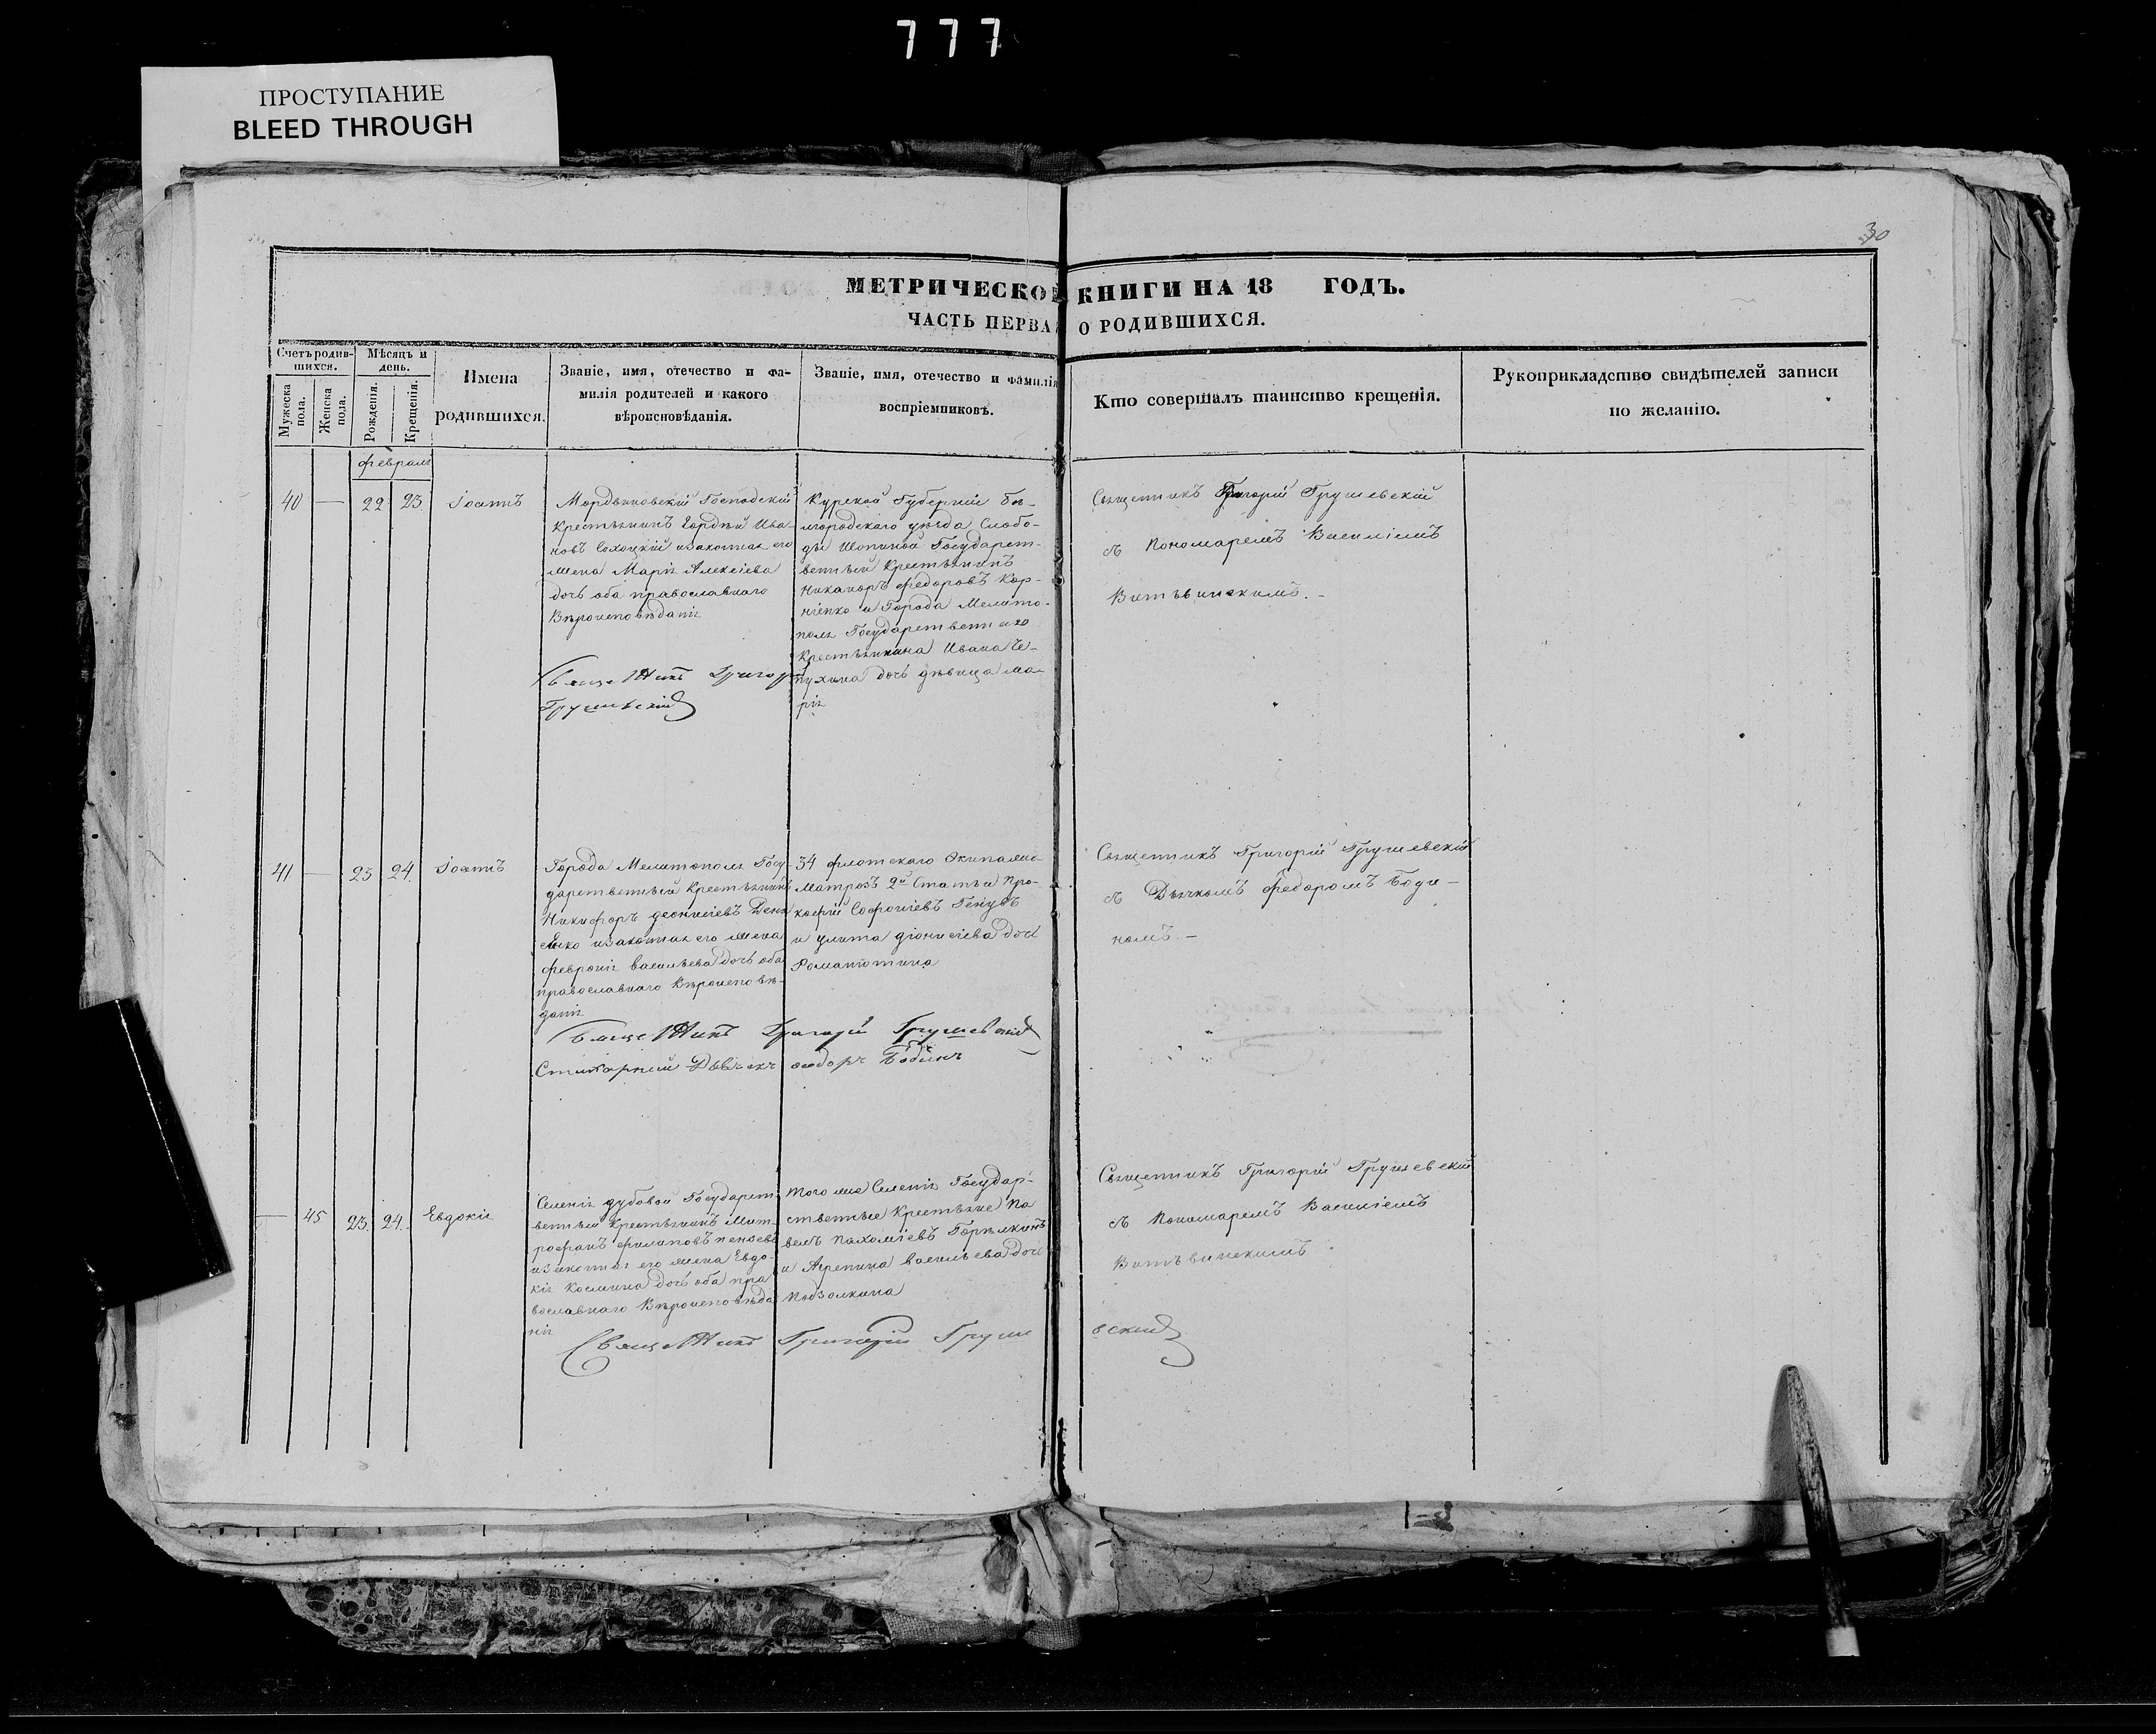 777
ПРОСТУПАНИЕ
BLEED THROUGH
30
МЕТРИЧЕСКОЙ КНИГИ НА 18 ГОДЪ.
ЧАСТЬ ПЕРВАЯ О РОДИВШИХСЯ.
Счетъ родив-
шихся.
Мужеска
пола.
Женска
пола.
Мѣсяцъ и
день.
Рожденія.
Крещенія.
Имена
родившихся.
Званіе, имя, отечество и фа-
милія родителей и какого
вѣроисповѣданія.
Званіе, имя, отечество и фамилія
воспріемниковъ.
Кто совершалъ таинство крещенія.
Рукоприкладство свидѣтелей записи
по желанію.
февраль
40 — 22 23 Іоаннъ
Мордвиновскій Господскій
Крестьянинъ Гордѣй Ива-
новъ Сохоцкій и законная его
жена Марія Алексіева
дочь оба православнаго
Вѣроисповѣданія
Священникъ Григорій
Грушевскій
Курской Губерніи Бѣ-
лгородскаго уѣзда Слобо-
ды Шопиной Государст-
венный Крестьянинъ
Никаноръ Федоровъ Кор-
ніенко и Города Мелито-
поля Государственнаго
Крестьянина Ивана Че-
пухина дочь дѣвица Ма-
рія
Священникъ Григорій Грушевскій
съ Пономаремъ Василіемъ
Витвинскимъ. -
41 — 23 24. Іоаннъ
Города Мелитополя Госу-
дарственный Крестьянинъ
Никифоръ Деонисіевъ
и законная его жена
Февронія Васильева дочь оба
православнаго Вѣроисповѣ-
данія
34 флотскаго Экипажа
Матрозъ 2й Статьи Про-
кофій Софоніевъ
и Улита Діонисіева дочь
Священникъ Григорій Грушевскій
Дьячекъ Феодоръ Бодинъ
Священникъ Григорій Грушевскій
съ Дьячкомъ Федоромъ Боди-
номъ. -
— 45 23. 24. Евдокія
Селенія Дубовой Государст
венный Крестьянинъ Мит-
рофанъ Филиповъ
и законная его жена Евдо-
кія Космина дочь оба пра
вославнаго Вѣроисповѣда
нія
Того же Селенія Государ-
ственные Крестьяне Па
велъ Пахоміевъ Горѣлкинъ
и Агрепина Васильева дочь
Подзолкина
Священникъ Григорій Груше
вскій
Священникъ Григорій Грушевскій
съ Пономаремъ Василіемъ
Витвинскимъ